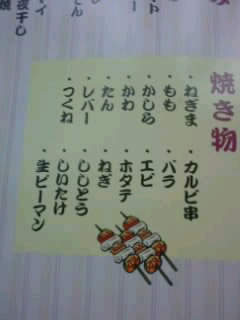 焼き物
・ねぎま
・もも
・かしら
・かわ
・たん
・レバー
・つくね
・カルビ串
・バラ
・エビ
・ホタテ
・ねぎ
・ししとう
・しいたけ
・生ピーマン